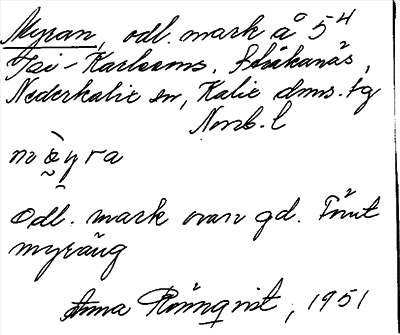 Myran, odl. mark å 5⁴
Pei-Karlsoms, Bläkanäs,
Nederkalix sn, Kalix dms. tg
Norrb. l
m ö̀ y r a
Odl. mark ovan gd. Förut
myräng
Anna Rönnqvist, 1951